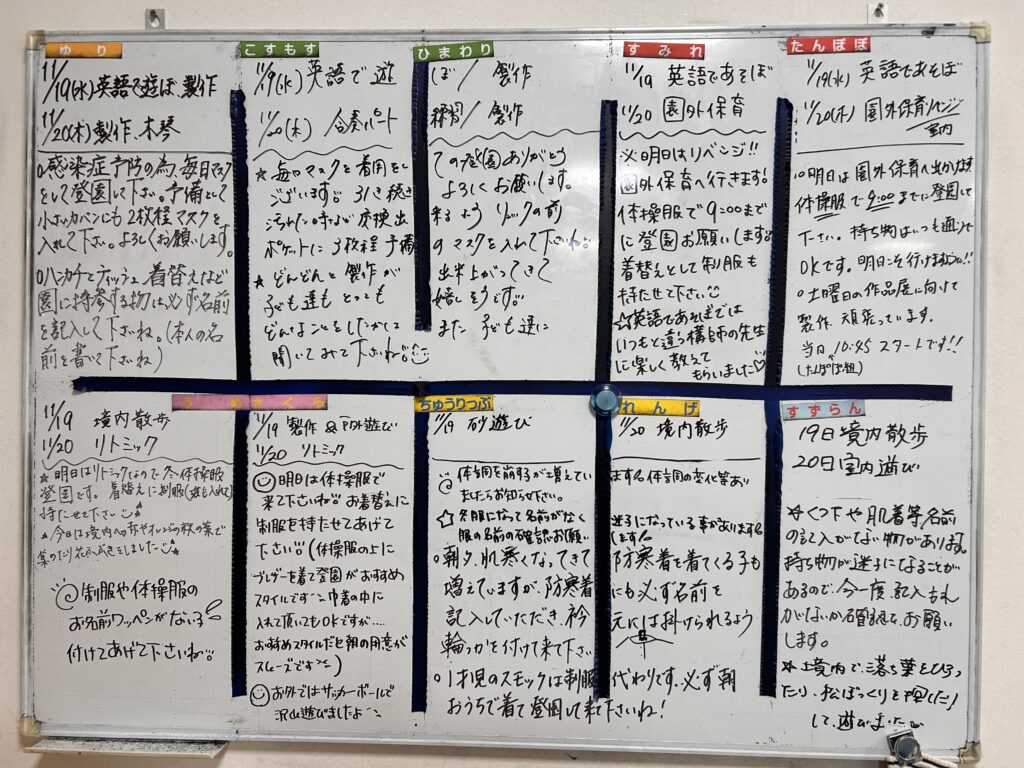 ゆり
11/19(水)英語で遊ぼ 製作
11/20(木)製作、木琴
○感染症予防の為、毎日マスク
をして登園して下さい。予備として
小さいカバンにも2枚程マスクを
入れて下さい。よろしくお願いします。
○ハンカチとティッシュ、着替えなど
園に持参する物は必ず名前
を記入して下さいね。(本人の名
前を書いて下さいね)
こすもす ひまわり
11/19(水) 英語で遊ぼ/ 製作
11/20(木) 合奏パート練習/ 製作
★毎日マスクを着用しての登園ありがとう
ございます。引き続きよろしくお願いします。
汚れた時など交換出来るようリュックの前
ポケットに3枚程予備のマスクを入れて下さいね
★どんどんと製作が出来上がってきて
子ども達もとっても嬉しそうです。
どんなことをしたかはまた子ども達に
聞いてみて下さいね
すみれ
11/19 英語であそぼ
11/20 園外保育
※明日はリベンジ!!
園外保育へ行きます!
体操服で9:00まで
に登園お願いします。
着替えとして制服も
持たせて下さい
☆英語であそぼでは
いつもと違う講師の先生
に楽しく教えて
もらいました♡
たんぽぽ
11/19(水) 英語であそぼ
11/20(木) 園外保育リベンジ
室内
○明日は園外保育へ出かけます
体操服で9:00までに登園して
下さい。持ち物はいつも通りで
OKです。明日こそ行けますように!!
○土曜日の作品展に向けて
製作 頑張っています。
当日 10:45 スタートです!!
(たんぽぽ組)
うめ
11/19 境内散歩
11/20 リトミック
★明日はリトミックなので冬体操服
登園です。着替えに制服(
持たせて下さい
★今日は境内へ赤やオレンジの秋の葉で
集めたり花
制服や体操服の
お名前ワッペンがない
付けてあげて下さいね
さくら
11/19 製作 & 戸外遊び
11/20 リトミック
明日は体操服で
来て下さいね お着替えに
制服を持たせてあげて
下さい(体操服の上に
ブレザーを着て登園がおすすめ
スタイルです 巾着の中に
入れて頂いてもOKですが....
おすすめスタイルだと朝の用意が
スムーズです)
お外ではサッカーボールで
沢山遊びましたよ
ちゅうりっぷ れんげ
11/19 砂遊び
11/20 境内散歩
体調を崩す子が増えています。体調の変化等あり
ましたらお知らせ下さい。
☆冬服になって名前がなく迷子になっている事があります
服の名前の確認お願いします!
○朝夕、肌寒くなってきて防寒着を着てくる子も
増えていますが、防寒着にも必ず名前を
記入していただき、衿元には掛けられるよう
輪っかを付けて来て下さい
○1才児のスモックは制服代わりです。必ず朝
おうちで着て登園して来て下さいね!
すずらん
19日境内散歩
20日室内遊び
★くつ下や肌着等、名前
の記入がない物があります。
持ち物が迷子になることが
あるので、今一度、記入もれ
がないか確認を、お願い
します。
★境内で、落ち葉をひろっ
たり、松ぼっくりを探したり
して、遊びました